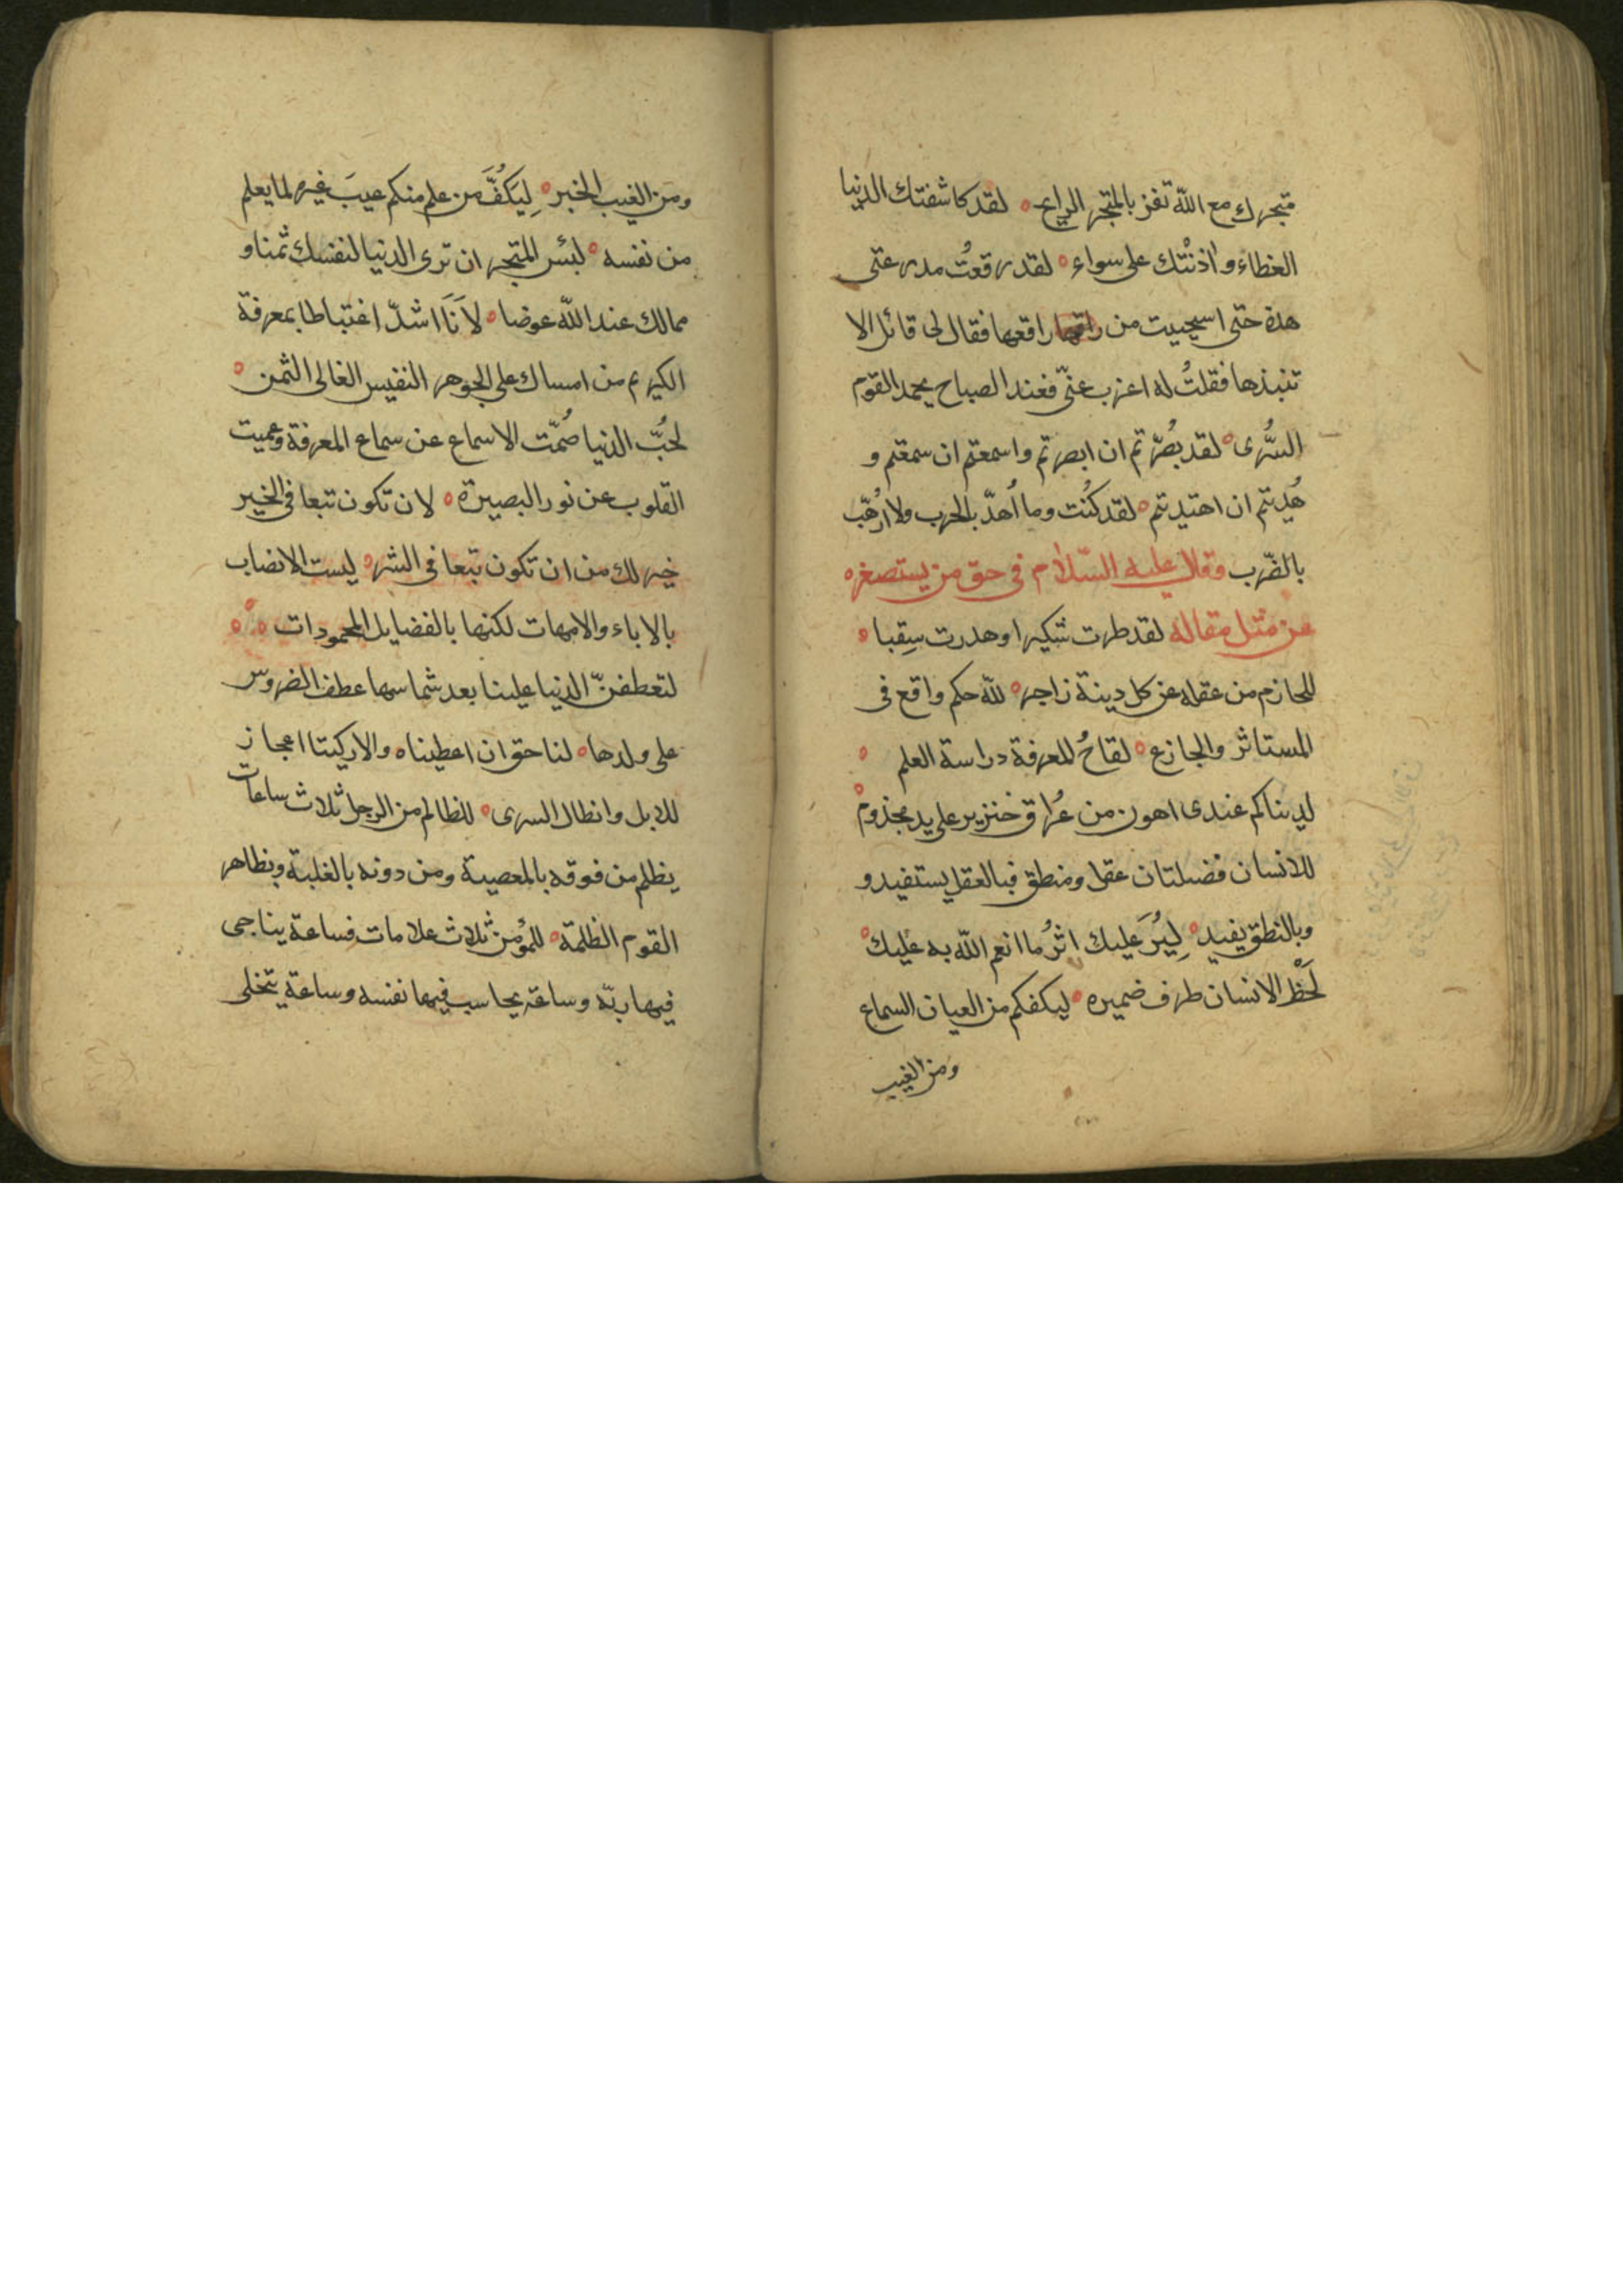 متجرك مع الله تفز بالمتجر الرابح ٥ لقد كاشفتك الدنيا
الغطاء و اٰذنْتك على سواء ٥ لقد رقعتُ مدرعتى
هذه حتى استحييت من راقعها فقال لى قائل الا
تنبذها فقلتُ له اعزب عنّى فعند الصباح يحمد القوم
السُّرى ٥ لقد بُصّرتم ان ابصرتم واسمعتم ان سمعتم و
هُديتم ان اهتديتم ٥ لقد كُنت وما اُهدّ بالحرب ولا اُرهّب
بالضّرب وقال عليه السّلام فى حق من يستصغره
عن مثل مقاله لقد طرت شكيرا وهدرت سِقبا ٥
للحازم من عقله عن كل دينة زاجر ٥ لله حكم واقع فى
المستاثر والجازع ٥ لقاحُ المعرفة دراسة العلم ٥
لدنياكم عندى اهون من عُراق خنزير على يد مجذوم ٥
للانسان فضيلتان عقل ومنطق فبالعقل يستفيد و
وبالنطق يفيد ٥ لِيُرَ عليك اثرُ ما انعم الله به عليك ٥
لَحْظ الانسان طرف ضميره ٥ ليكفكم من العيان السماع
ومن الغيب
ومن الغيب الخبر ٥ لِيَكُفَّ من علم منكم عيبَ غيره لما يعلم
من نفسه ٥ لبئس المتجر ان ترى الدنيا لنفسك ثمنا و
ممالك عند الله عوضا ٥ لاَنَا اشدّ اغتباطا بمعرفة
الكريم من امساك على الجوهر النفيس الغالى الثمن ٥
لحُبّ الدنيا صُمّت الاسماع عن سماع المعرفة وعميت
القلوب عن نور البصيرة ٥ لان تكون تبعا فى الخير
خير لك من ان تكون تبعا فى الشر ٥ ليست الانصاب
بالاباء والامهات لكنها بالفضايل المحمودات ٥ ٥ ٥
لتعطفنّ الدنيا علينا بعد شماسها عطف الضروس
على ولدها ٥ لنا حق ان اعطيناه والا ركبنا اعجاز
للابل وان طال السرى ٥ للظالم من الرجل ثلاث ساعات
يظلم من فوقه بالمعصية ومن دونه بالغلبة ويظاهر
القوم الظلمة ٥ للمؤمن ثلاث علامات فساعة يناجى
فيها ربّه وساعة يحاسب فيها نفسه وساعة يتخلى